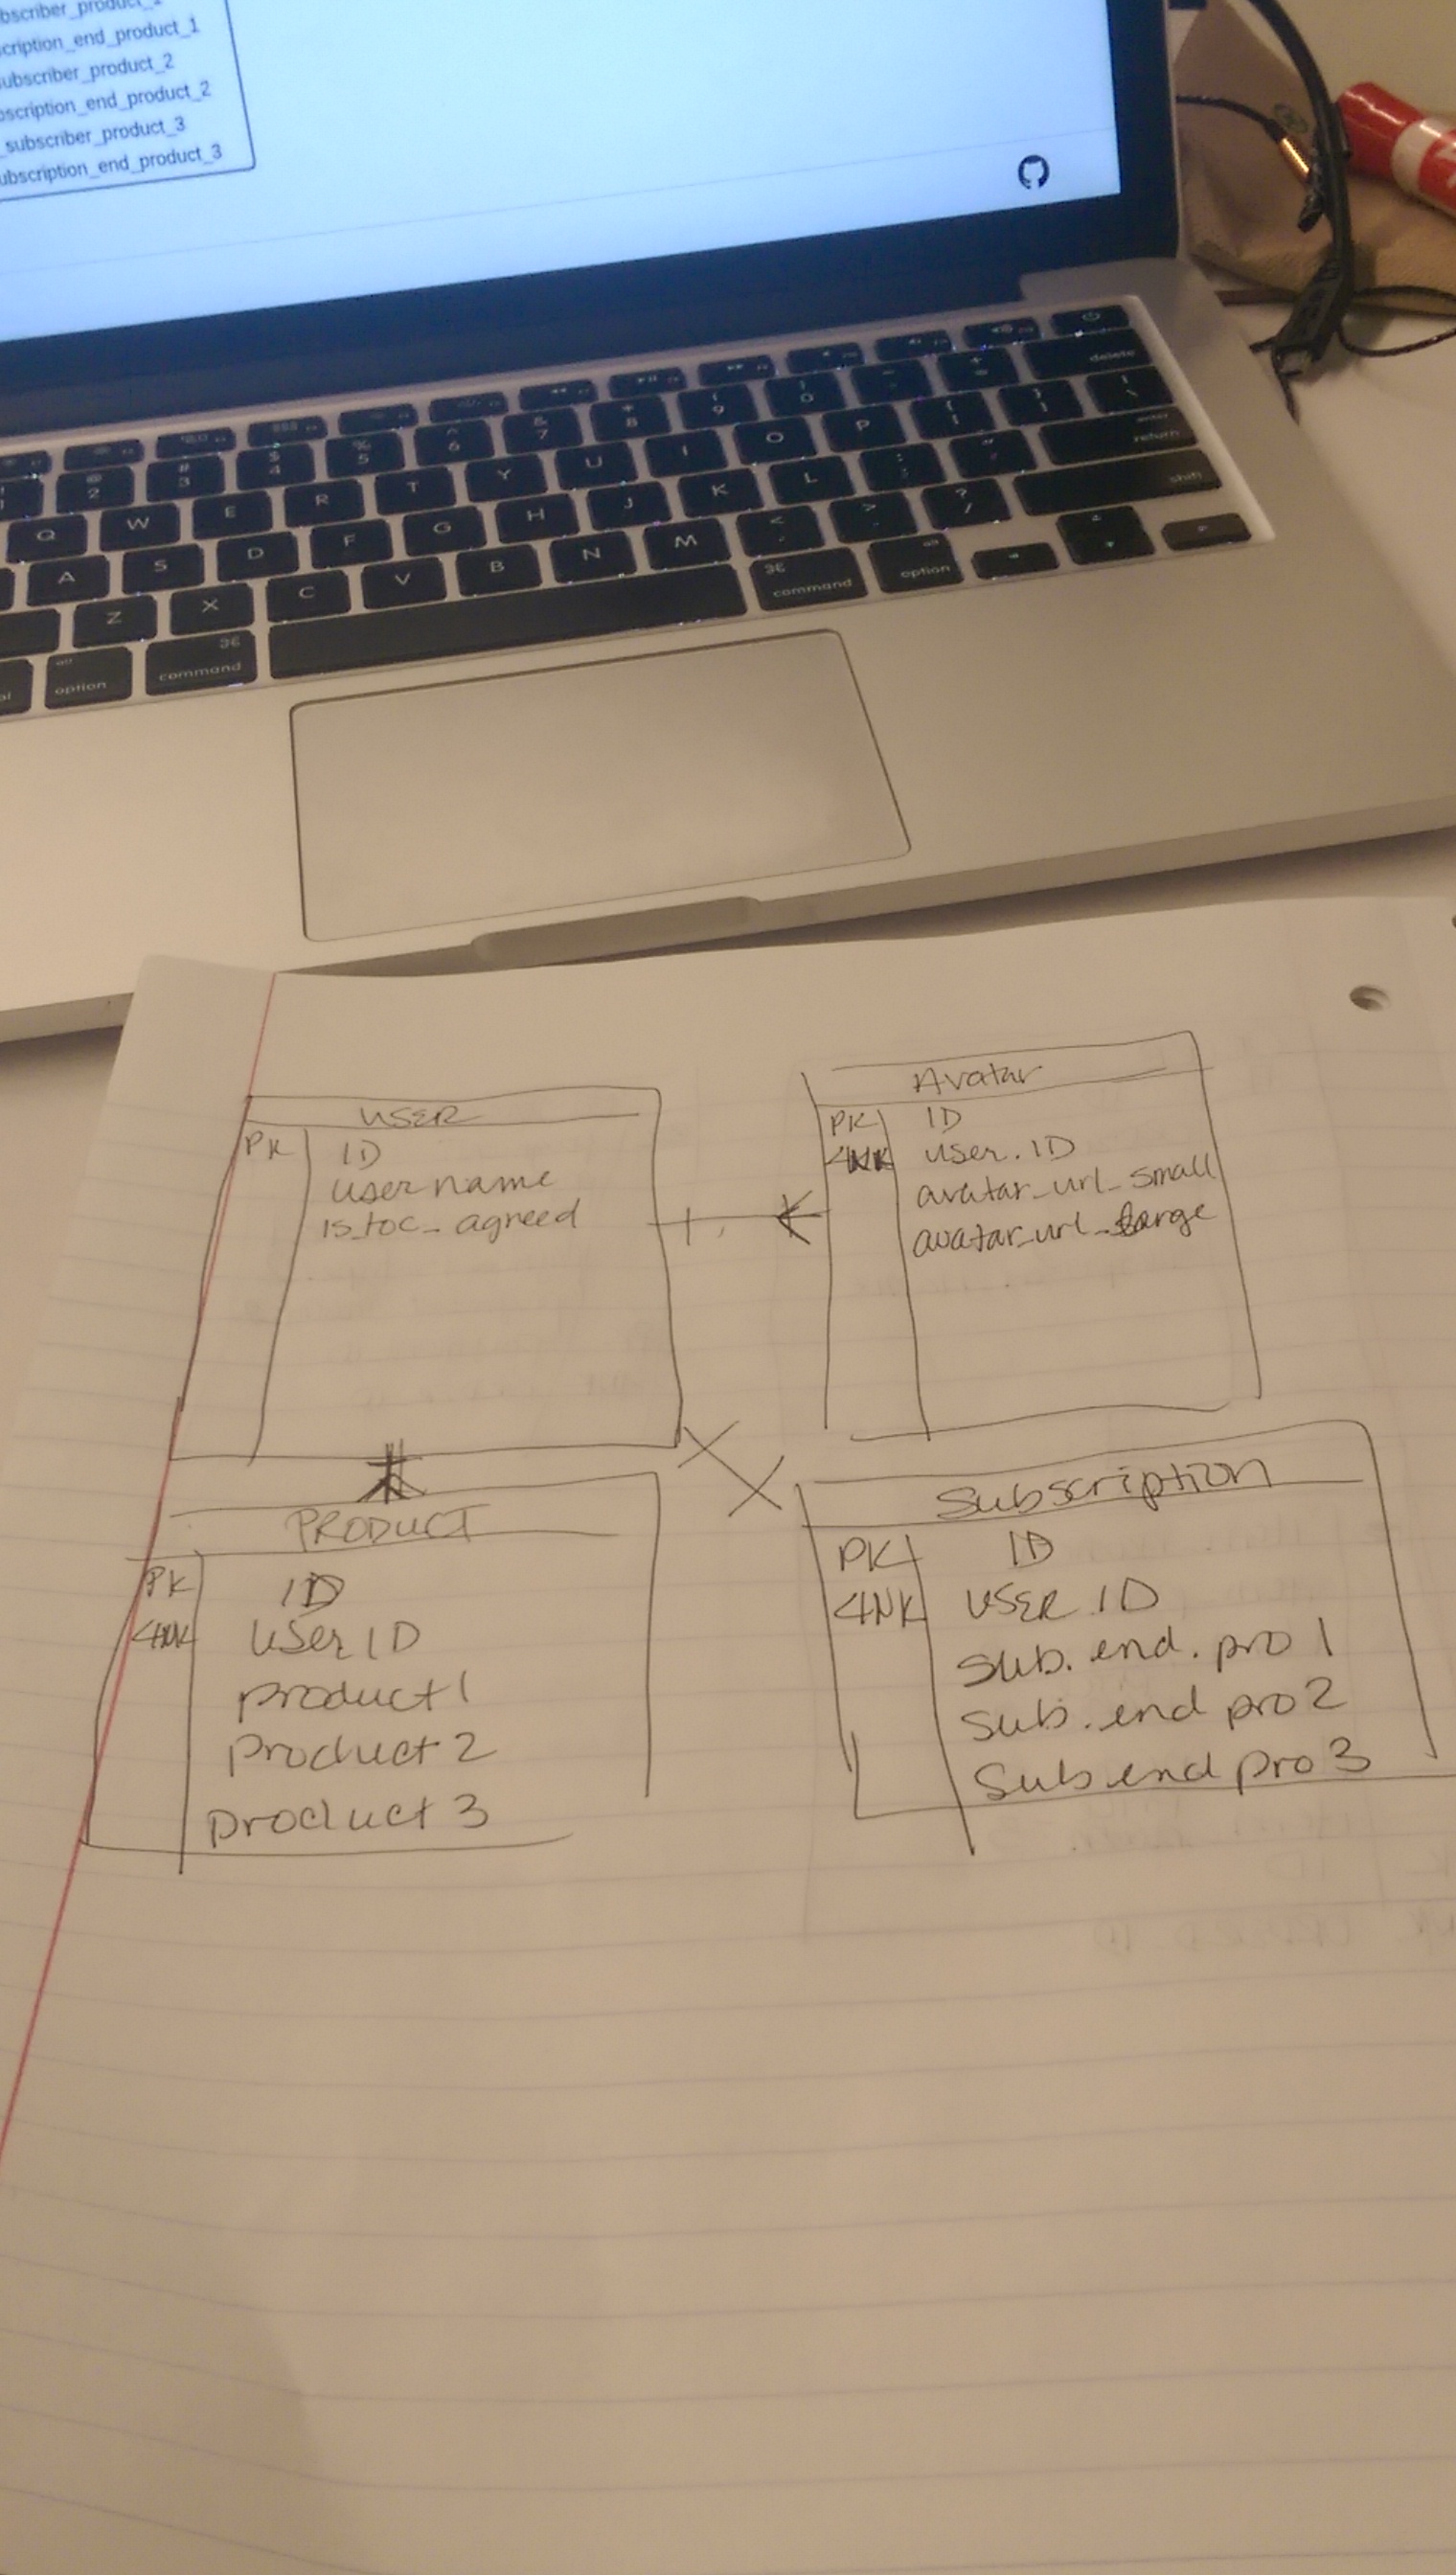 bscriber_product_1
cription_end_product_1
ubscriber_product_2
bscription_end_product_2
_subscriber_product_3
ubscription_end_product_3
delete
# 3
$ 4
% 5
^ 6
& 7
* 8
( 9
) 0
Q W E R T Y U I O P
enter return
A S D F G H J K L
shift
Z X C V B N M
alt option
⌘ command
⌘ command
alt option
USER
PK ID
username
is_toc_agreed
Avatar
PK ID
user.ID
avatar_url_small
avatar_url_large
PRODUCT
PK ID
user ID
product 1
product 2
product 3
Subscription
PK ID
<HNK USER ID
sub. end. pro 1
sub. end pro 2
sub end pro 3